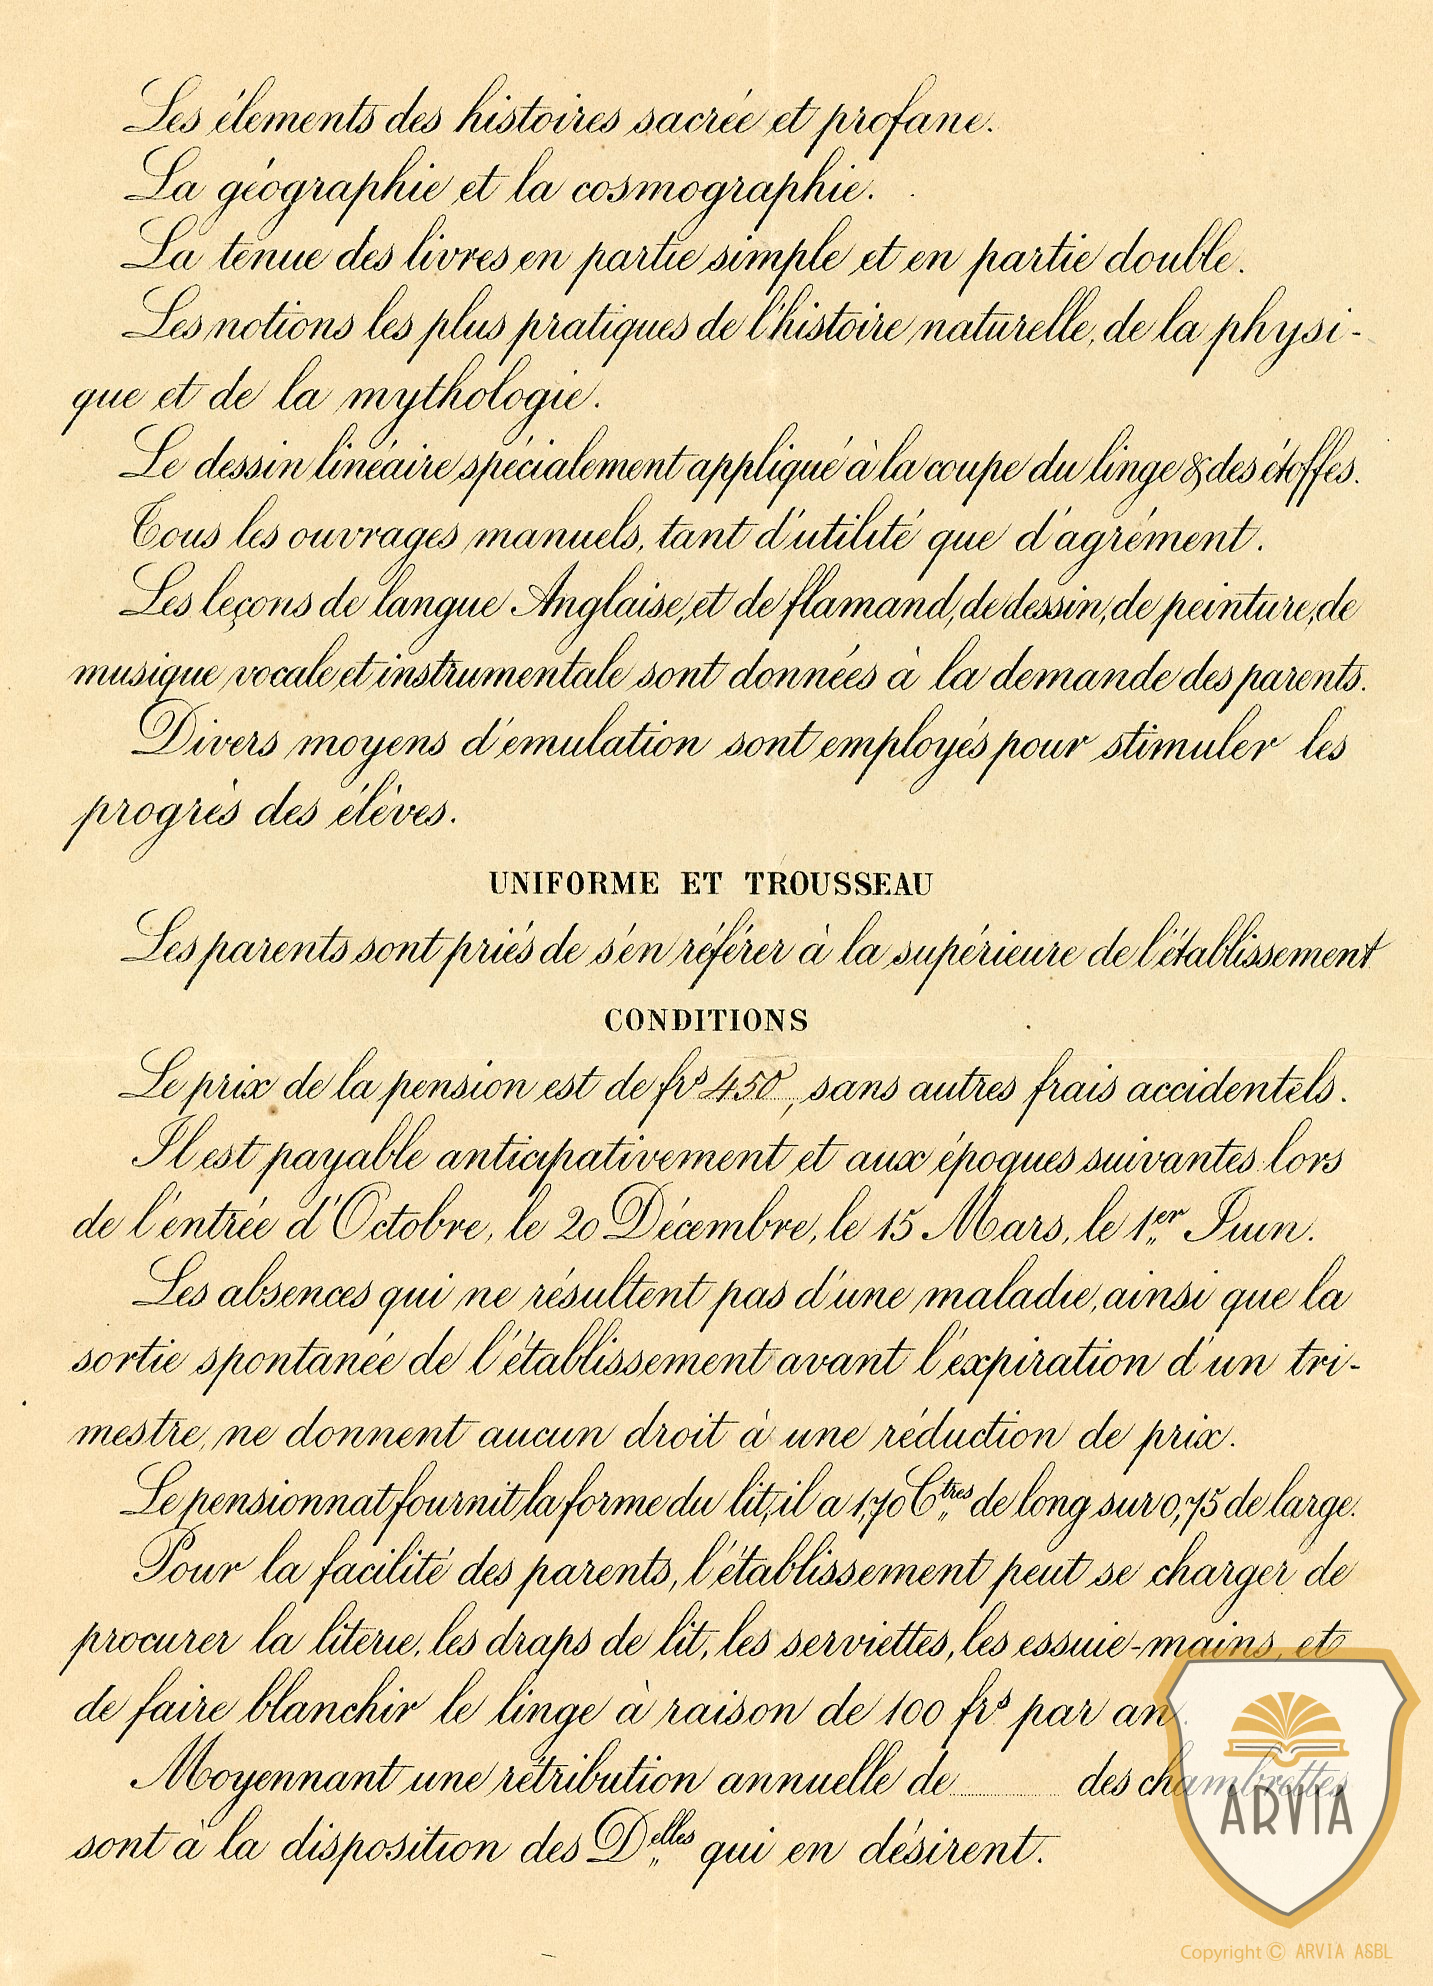 Les élements des histoires sacrée et profane.
La géographie et la cosmographie.
La tenue des livres en partie simple et en partie double.
Les notions les plus pratiques de l'histoire naturelle, de la physi-
que et de la mythologie.
Le dessin linéaire spécialement appliqué à la coupe du linge & des étoffes.
Tous les ouvrages manuels, tant d'utilité que d'agrément.
Les leçons de langue Anglaise, et de flamand, de dessin, de peinture, de
musique vocale et instrumentale sont données à la demande des parents.
Divers moyens d'émulation sont employés pour stimuler les
progrès des élèves.
UNIFORME ET TROUSSEAU
Les parents sont priés de s'en référer à la supérieure de l'établissement
CONDITIONS
Le prix de la pension est de frs 450, sans autres frais accidentels.
Il est payable anticipativement et aux époques suivantes: lors
de l'entrée d'Octobre, le 20 Décembre, le 15 Mars, le 1er Juin.
Les absences qui ne résultent pas d'une maladie, ainsi que la
sortie spontanée de l'établissement avant l'expiration d'un tri-
mestre, ne donnent aucun droit à une réduction de prix.
Le pensionnat fournit la forme du lit, il a 1,70 Ctres de long sur 0,75 de large.
Pour la facilité des parents, l'établissement peut se charger de
procurer la literie, les draps de lit, les serviettes, les essuie-mains, et
de faire blanchir le linge à raison de 100 frs par an.
Moyennant une rétribution annuelle de des chambrettes
sont à la disposition des Delles qui en désirent.
ARVIA
Copyright © ARVIA ASBL